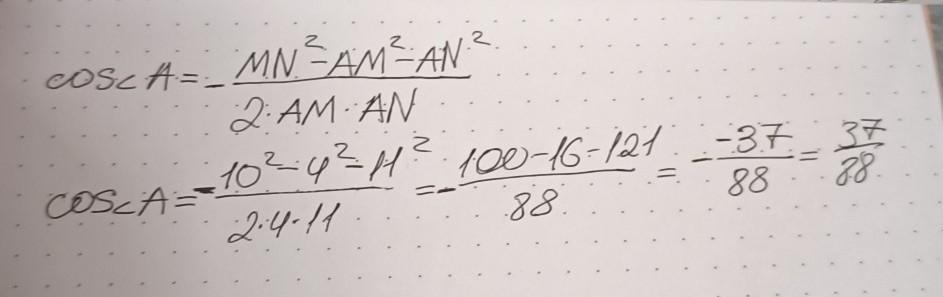 cos∠A = - (MN² - AM² - AN²) / (2·AM·AN)
cos∠A = - (10² - 4² - 11²) / (2·4·11) = - (100 - 16 - 121) / 88 = - (-37) / 88 = 37 / 88